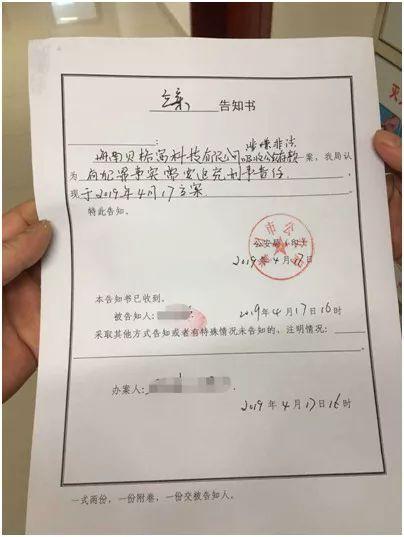 立案 告知书
：
海南贝格富科技有限公司涉嫌非法吸收公众存款 一案，我局认
为 有犯罪事实需要追究刑事责任，
现于2019年4月17立案。
特此告知。
公安局（印）
2019年4月17日
本告知书已收到。
被告知人：
2019年4月17日16时
采取其他方式告知或者有特殊情况未告知的，注明情况：
办案人：
2019年4月17日16时
一式两份，一份附卷，一份交被告知人。